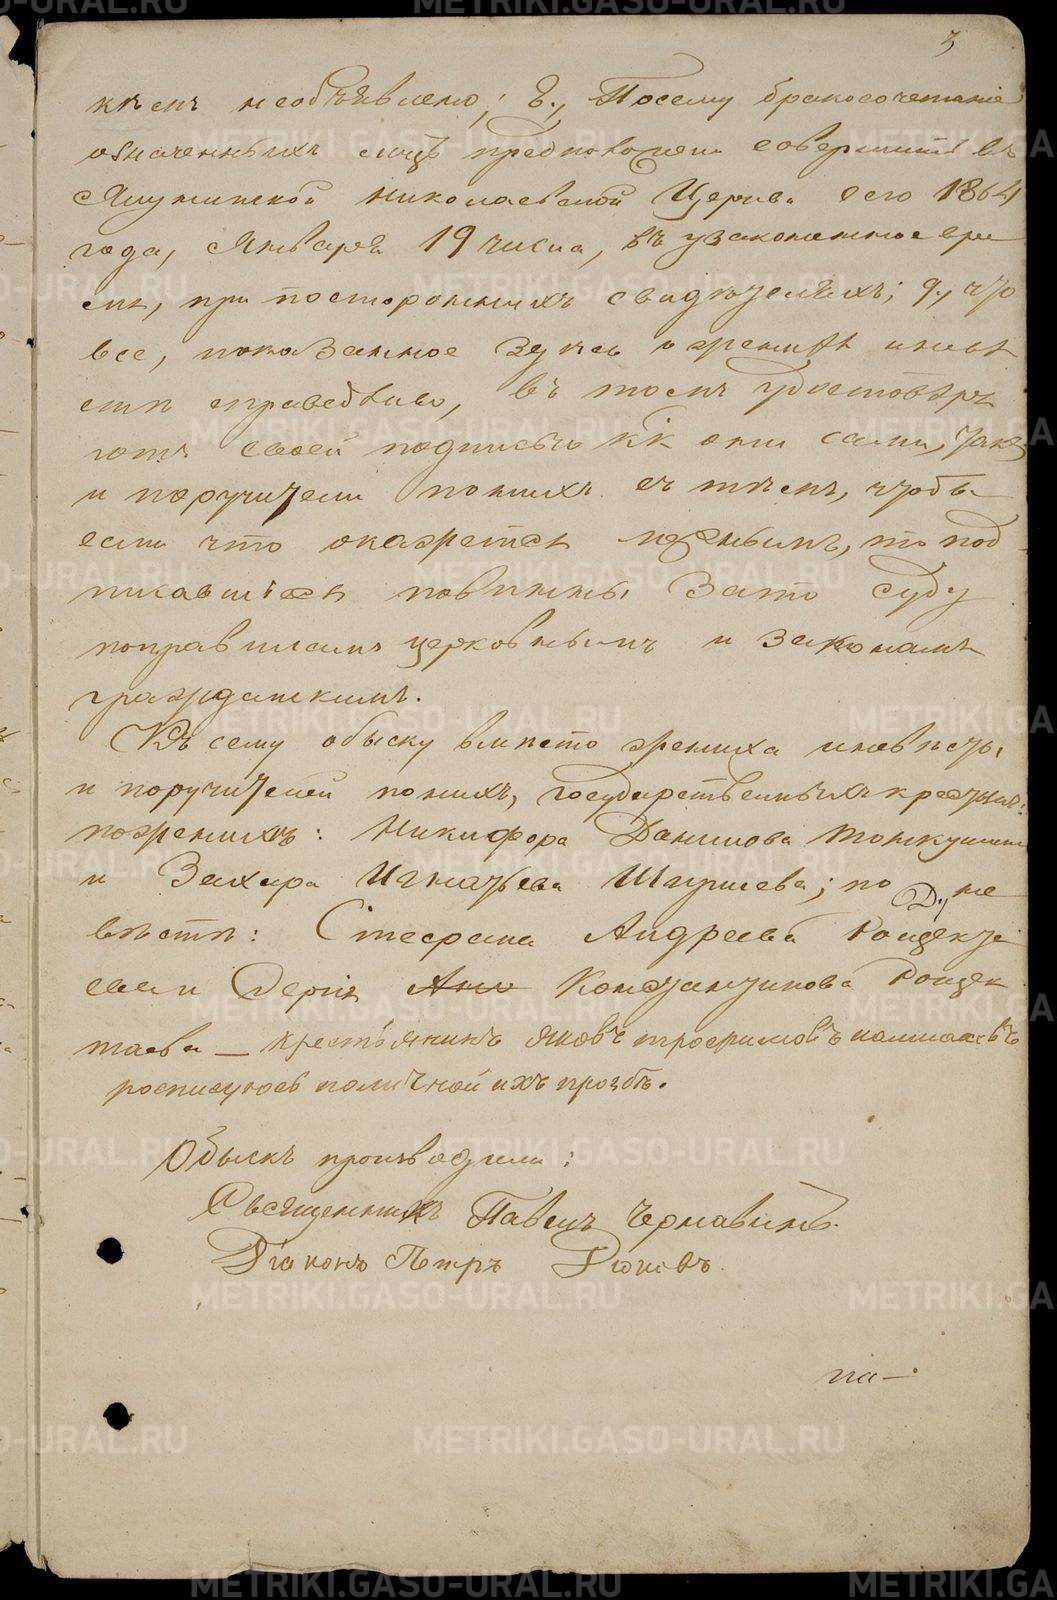 3
кѣмъ необъявлено; 8., Посему бракосочетаніе
означенныхъ лицъ предположено совершить въ
Николаевской Церкви сего 1864
года, Января 19 числа, въ узаконенное вре
мя, при постороннихъ свидѣтеляхъ; 9., что
все, показанное здѣсь о женихѣ и невѣ
стѣ справедливо, въ томъ удостовѣря
ютъ своей подписью кᵏ они сами, такъ
и поручители по нихъ съ тѣмъ, чтобы
если что окажется ложнымъ, то под
писавшіеся повинны за то суду
по правиламъ церковнымъ и законамъ
гражданскимъ.
Къ сему обыску вмѣсто жениха и невѣсты
и поручителей по нихъ, государственныхъ крестьянъ:
по женихѣ: Никифора Данилова
и Захара Игнатьева; по не
вѣстѣ: Стефана Андреева
и Константинова
крестьянинъ Яковъ Трофимовъ
росписуюсь по личной ихъ прозбѣ.
Обыскъ производили:
Священникъ Павелъ Чернавинъ.
Діаконъ Петръ
па-
METRIKI.GASO-URAL.RU